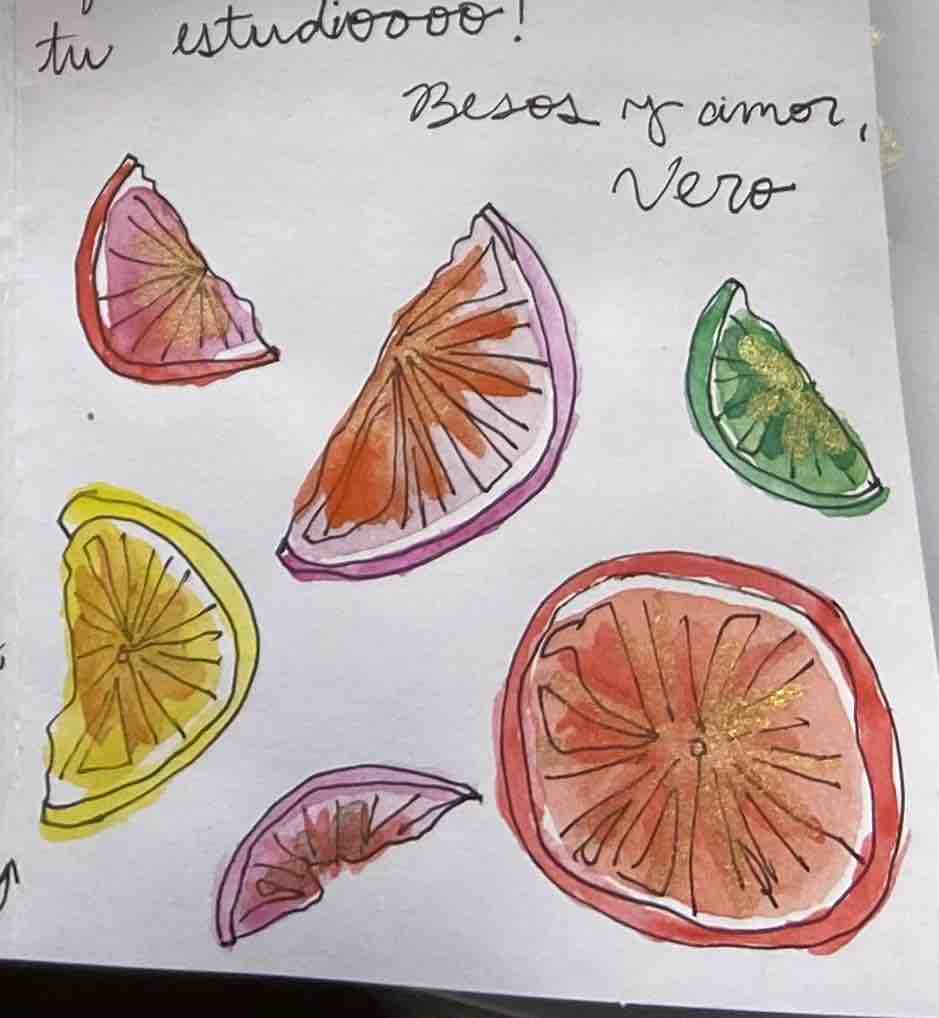 tu estudioooo!
Besos y amor,
Vero